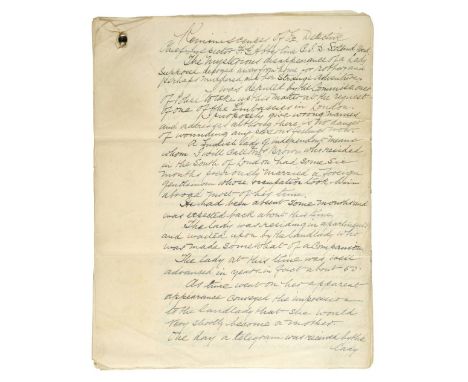 Reminiscences of Ex Detective
Chief Inspector F. G. Abberline C.I.D. Scotland Yard
The mysterious disappearance of a lady
suppose decoyed away from home or
perhaps murdered and her strange adventures
I was deputed by the Commissioners
of Police to take up this matter at the request
of one of the Embassies in London.
I purposely give wrong names
and addresses although there is no danger
of wounding any one's feelings now.
A English lady of independent means
whom I will call Mrs Brown who resided
in the South of London had some six
months previously married a foreign
gentleman whose occupation took him
abroad most of his time.
He had been absent some months and
was expected back about this time.
The lady was residing in apartments
and waited upon by the landlady who
was made somewhat of a companion
The lady at this time was well
advanced in years in fact about 50.
As time went on her apparent
appearance conveyed the impression
to the landlady that she would
very shortly become a mother.
The day a telegram was received by the
lady